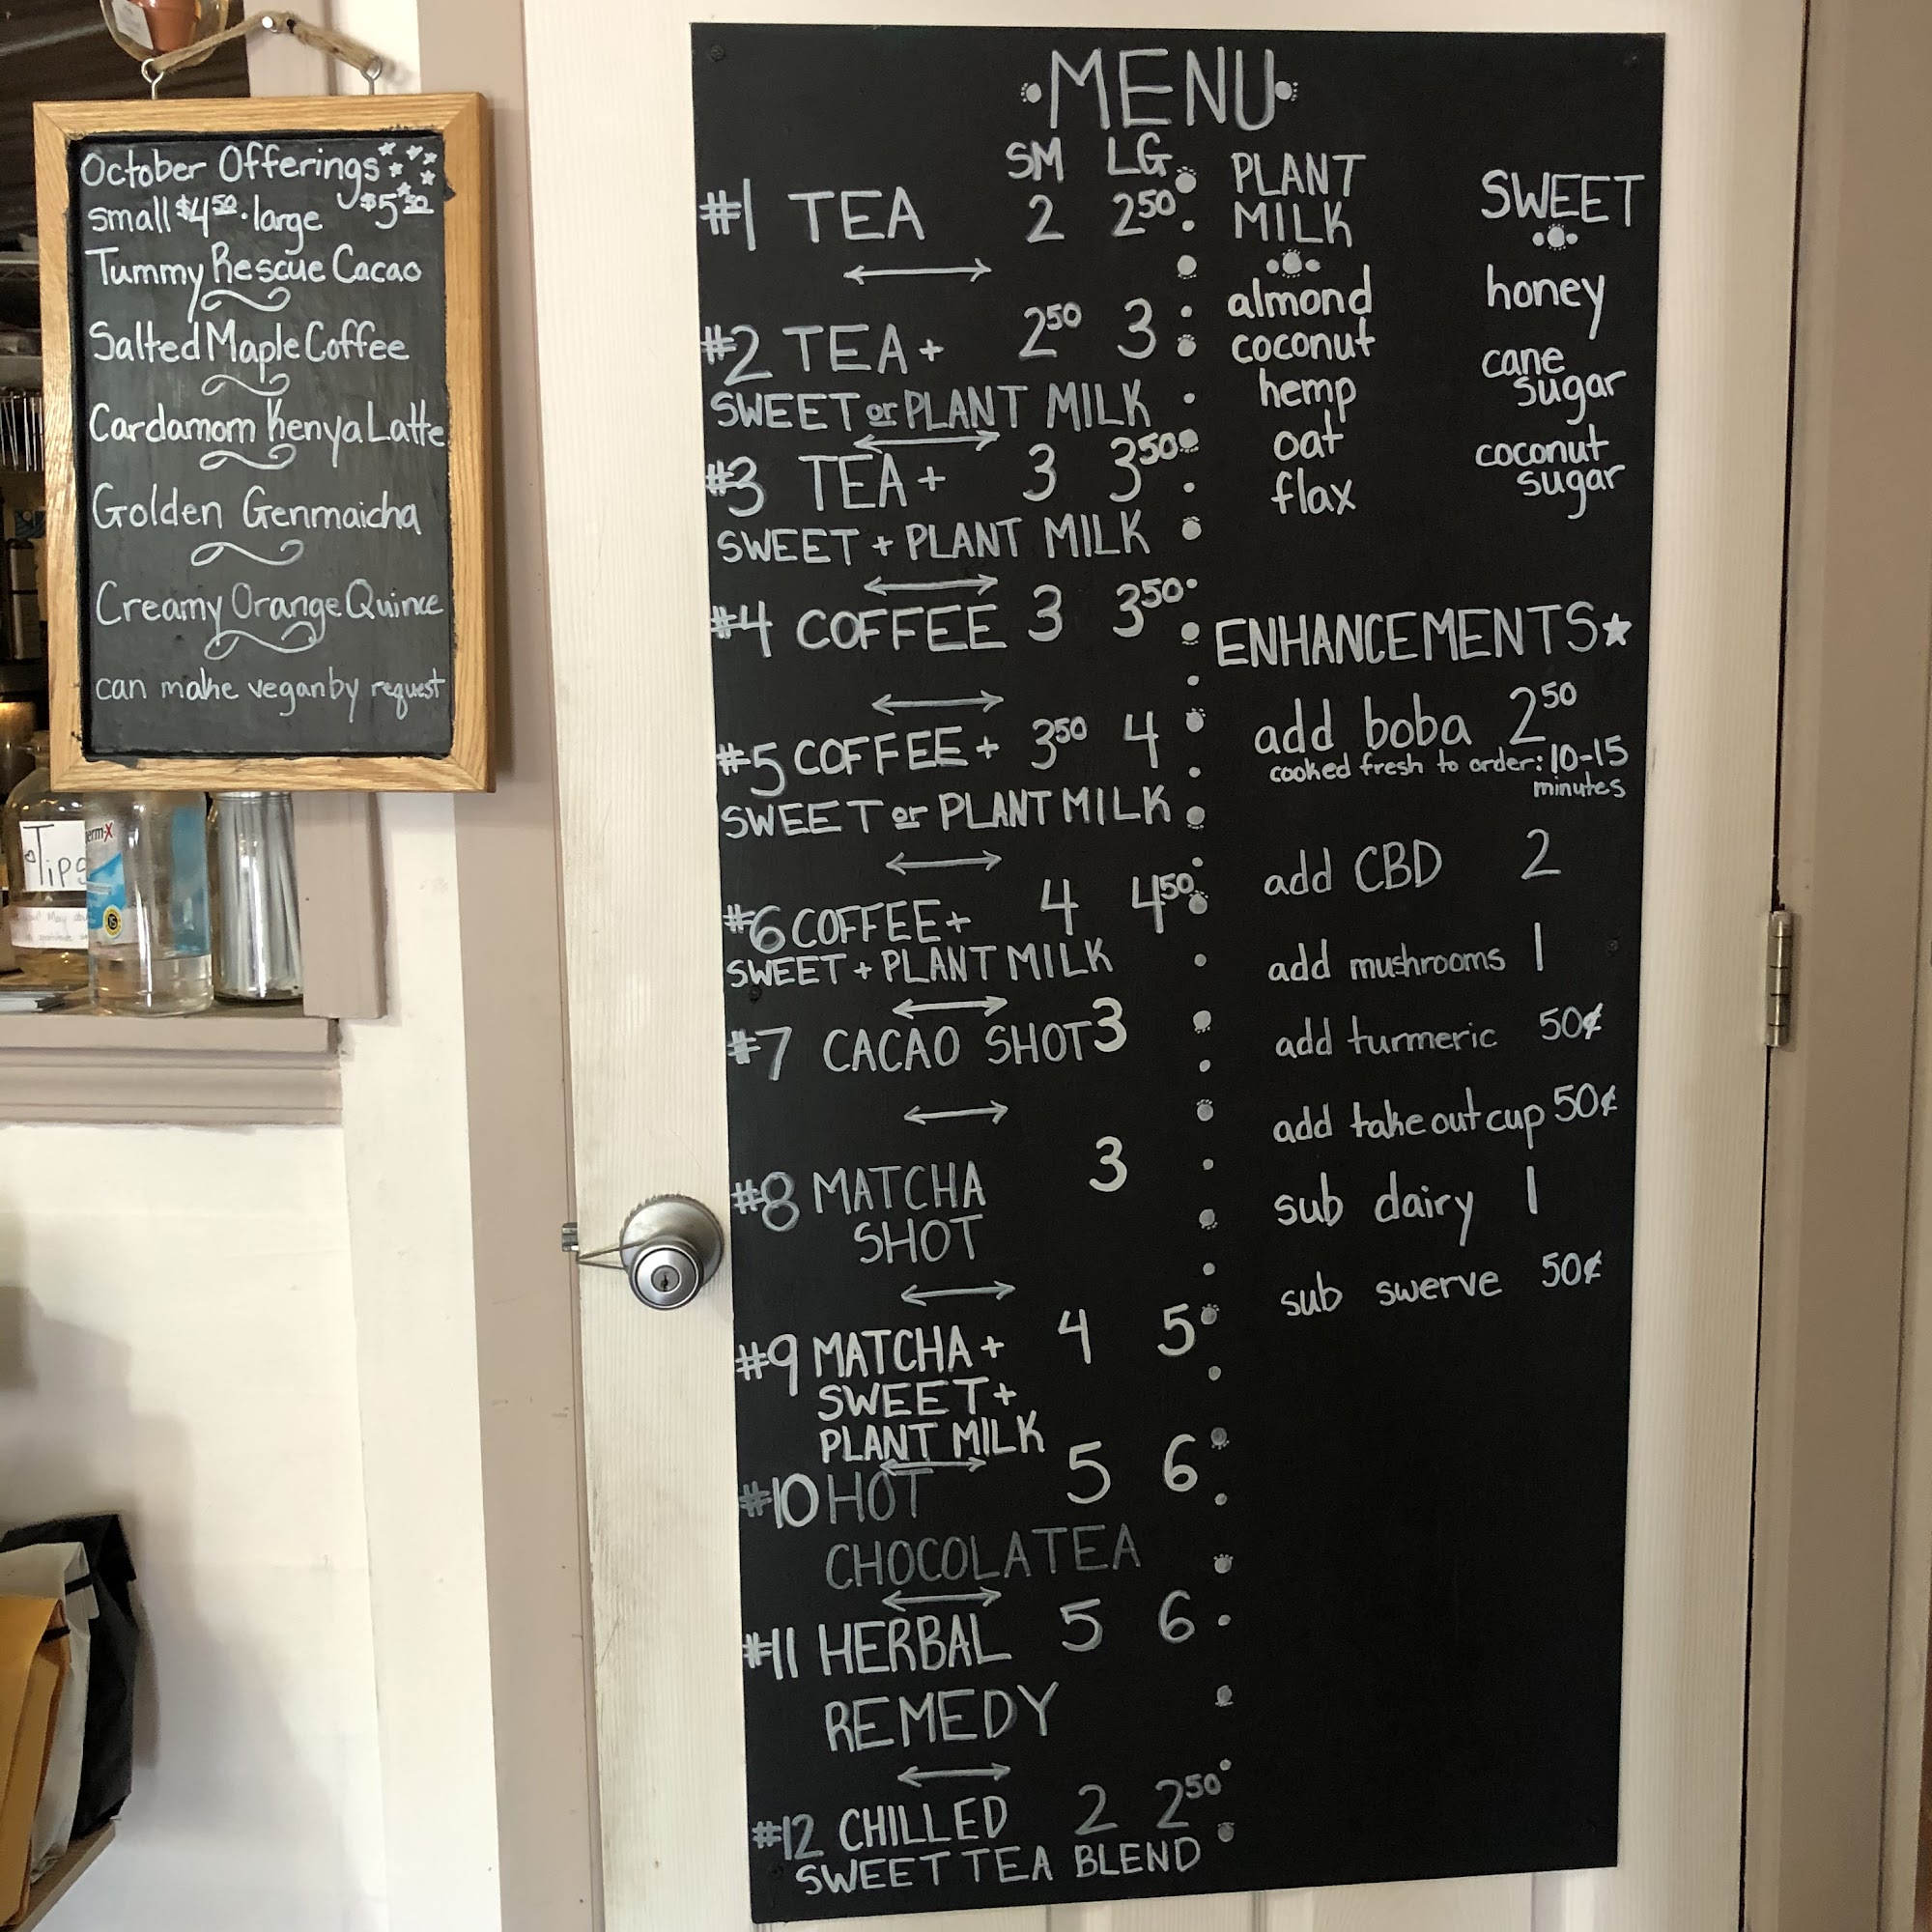 October Offerings
small $4.50 · large $5.50
Tummy Rescue Cacao
Salted Maple Coffee
Cardamom Kenya Latte
Golden Genmaicha
Creamy Orange Quince
can make vegan by request
Tips
erm-X
MENU
SM LG
#1 TEA 2 2.50
#2 TEA + 2.50 3
SWEET or PLANT MILK
#3 TEA + 3 3.50
SWEET + PLANT MILK
#4 COFFEE 3 3.50
#5 COFFEE + 3.50 4
SWEET or PLANT MILK
#6 COFFEE + 4 4.50
SWEET + PLANT MILK
#7 CACAO SHOT 3
#8 MATCHA 3
SHOT
#9 MATCHA + 4 5
SWEET +
PLANT MILK
#10 HOT 5 6
CHOCOLATEA
#11 HERBAL 5 6
REMEDY
#12 CHILLED 2 2.50
SWEET TEA BLEND
PLANT
MILK
almond
coconut
hemp
oat
flax
SWEET
honey
cane
sugar
coconut
sugar
ENHANCEMENTS
add boba 2.50
cooked fresh to order: 10-15
minutes
add CBD 2
add mushrooms 1
add turmeric 50¢
add take out cup 50¢
sub dairy 1
sub swerve 50¢